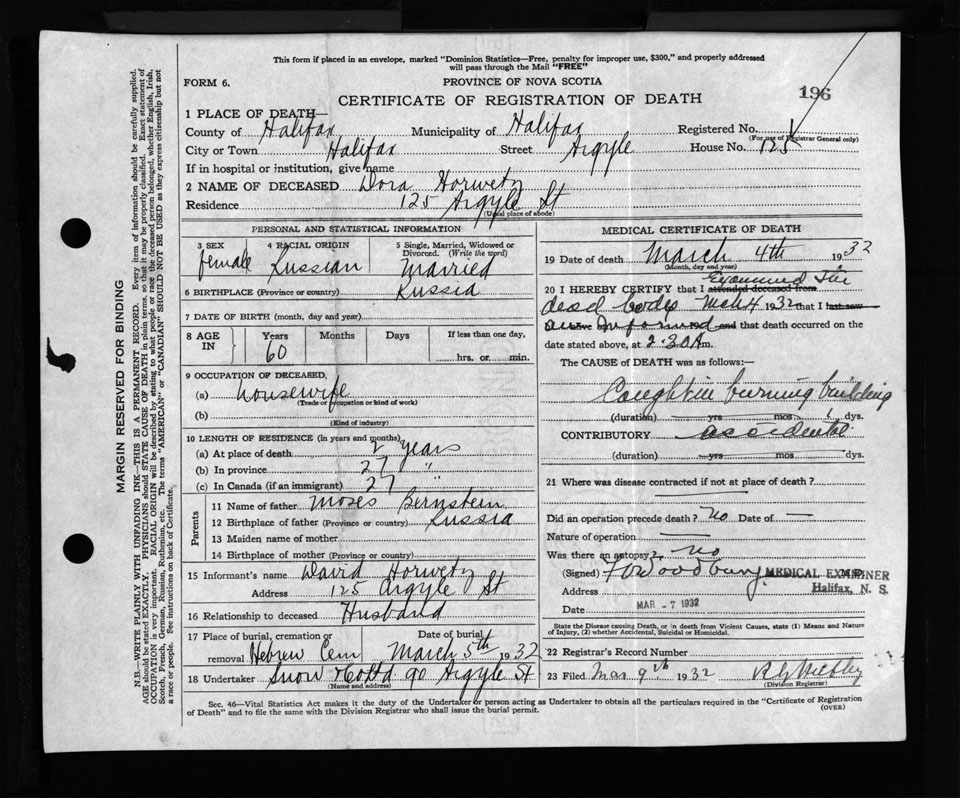 This form if placed in an envelope, marked "Dominion Statistics—Free, penalty for improper use, $300," and properly addressed
will pass through the Mail "FREE"
FORM 6.
PROVINCE OF NOVA SCOTIA
CERTIFICATE OF REGISTRATION OF DEATH
196
1 PLACE OF DEATH—
County of Halifax Municipality of Halifax Registered No.
(For use of Registrar General only)
City or Town Halifax Street Argyle House No. 125
If in hospital or institution, give name
2 NAME OF DECEASED Dora Horwetz
Residence 125 Argyle St
(Usual place of abode)
PERSONAL AND STATISTICAL INFORMATION
3 SEX 4 RACIAL ORIGIN 5 Single, Married, Widowed or
Divorced. (Write the word)
female Russian Married
6 BIRTHPLACE (Province or country) Russia
7 DATE OF BIRTH (month, day and year)
8 AGE IN Years Months Days If less than one day,
60 hrs. or min.
9 OCCUPATION OF DECEASED,
(a) housewife
(Trade or occupation or kind of work)
(b)
(Kind of industry)
10 LENGTH OF RESIDENCE (in years and months)
(a) At place of death 2 years
(b) In province 27 "
(c) In Canada (if an immigrant) 27
Parents
11 Name of father Moses Bernstein
12 Birthplace of father (Province or country) Russia
13 Maiden name of mother
14 Birthplace of mother (Province or country)
15 Informant's name David Horwetz
Address 125 Argyle St
16 Relationship to deceased Husband
17 Place of burial, cremation or Date of burial
removal Hebrew Cem March 5th 1932
18 Undertaker Snow & Co Ltd 90 Argyle St
(Name and address)
MEDICAL CERTIFICATE OF DEATH
19 Date of death March 4th 1932
(Month, day and year)
Examined the
20 I HEREBY CERTIFY that I attended deceased from
dead body Mch 4 1932 that I last saw
informed and that death occurred on
date stated above, at 2.30 A m.
The CAUSE OF DEATH was as follows:—
Caught in burning building
(duration) yrs mos 1 dys.
CONTRIBUTORY accidental
(duration) yrs mos dys.
21 Where was disease contracted if not at place of death?
Did an operation precede death? No Date of —
Nature of operation —
Was there an autopsy? no
(Signed) Woodbury MEDICAL EXAMINER
Address Halifax, N. S.
Date MAR - 7 1932
State the Disease causing Death, or in death from Violent Causes, state (1) Means and Nature
of Injury, (2) whether Accidental, Suicidal or Homicidal.
22 Registrar's Record Number
23 Filed Mar 9th 1932
(Division Registrar)
Sec. 46—Vital Statistics Act makes it the duty of the Undertaker or person acting as Undertaker to obtain all the particulars required in the "Certificate of Registration
of Death" and to file the same with the Division Registrar who shall issue the burial permit.
(OVER)
MARGIN RESERVED FOR BINDING
N.B.—WRITE PLAINLY WITH UNFADING INK—THIS IS A PERMANENT RECORD. Every item of information should be carefully supplied.
AGE should be stated EXACTLY. PHYSICIANS should STATE CAUSE OF DEATH in plain terms, so that it may be properly classified. Exact statement of
OCCUPATION is very important. RACIAL ORIGIN will be described by stating to what people or race the deceased person belonged, whether English, Irish,
Scotch, French, German, Russian, Ruthenian, etc. The terms "AMERICAN" or "CANADIAN" SHOULD NOT BE USED as they express citizenship but not
a race or people. See instructions on back of Certificate.